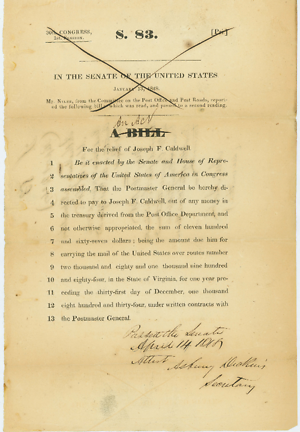 30th CONGRESS,
1st Session.
S. 83.
IN THE SENATE OF THE UNITED STATES
January
Mr. Niles, from the Committee on the Post Office and Post Roads, reported
the following bill; which was read, and passed to a second reading.
An Act
A BILL
For the relief of Joseph F. Caldwell
1 Be it enacted by the Senate and House of Repre-
2 sentatives of the United States of America in Congress
3 assembled, That the Postmaster General be hereby di-
4 rected to pay to Joseph F. Caldwell, out of any money in
5 the treasury derived from the Post Office Department, and
6 not otherwise appropriated, the sum of eleven hundred
7 and sixty-seven dollars; being the amount due him for
8 carrying the mail of the United States over routes number
9 two thousand and eighty and one thousand nine hundred
10 and eighty-four, in the State of Virginia, for one year pre-
11 ceding the thirty-first day of December, one thousand
12 eight hundred and thirty-four, under written contracts with
13 the Postmaster General.
Passed the Senate
April 14
Attest
Asbury Dickins
Secretary